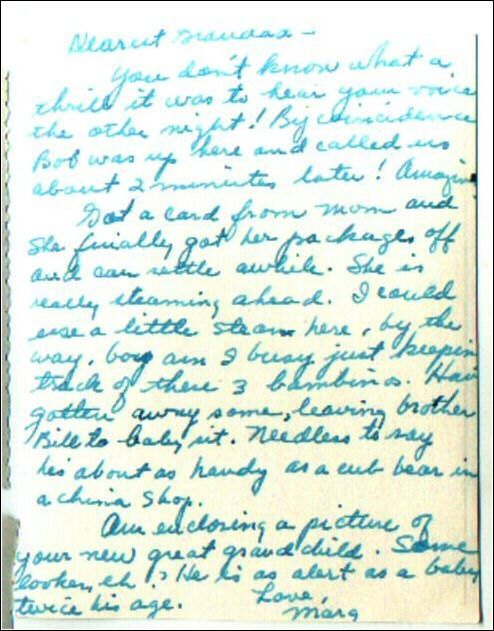 Dearest Grandad -
You don't know what a
thrill it was to hear your voice
the other night! By coincidence
Bob was up here and called us
about 2 minutes later! Amazing
Got a card from Mom and
she finally got her packages off
and can settle awhile. She is
really steaming ahead. I could
use a little steam here, by the
way, boy am I busy just keepin
track of these 3 bambinos. Hav
gotten away some, leaving brother
Bill to baby sit. Needless to say
his about as handy as a cub bear in
a china shop.
Am enclosing a picture of
your new great grandchild. Some
looker, eh? He is as alert as a baby
twice his age. Love,
Marg